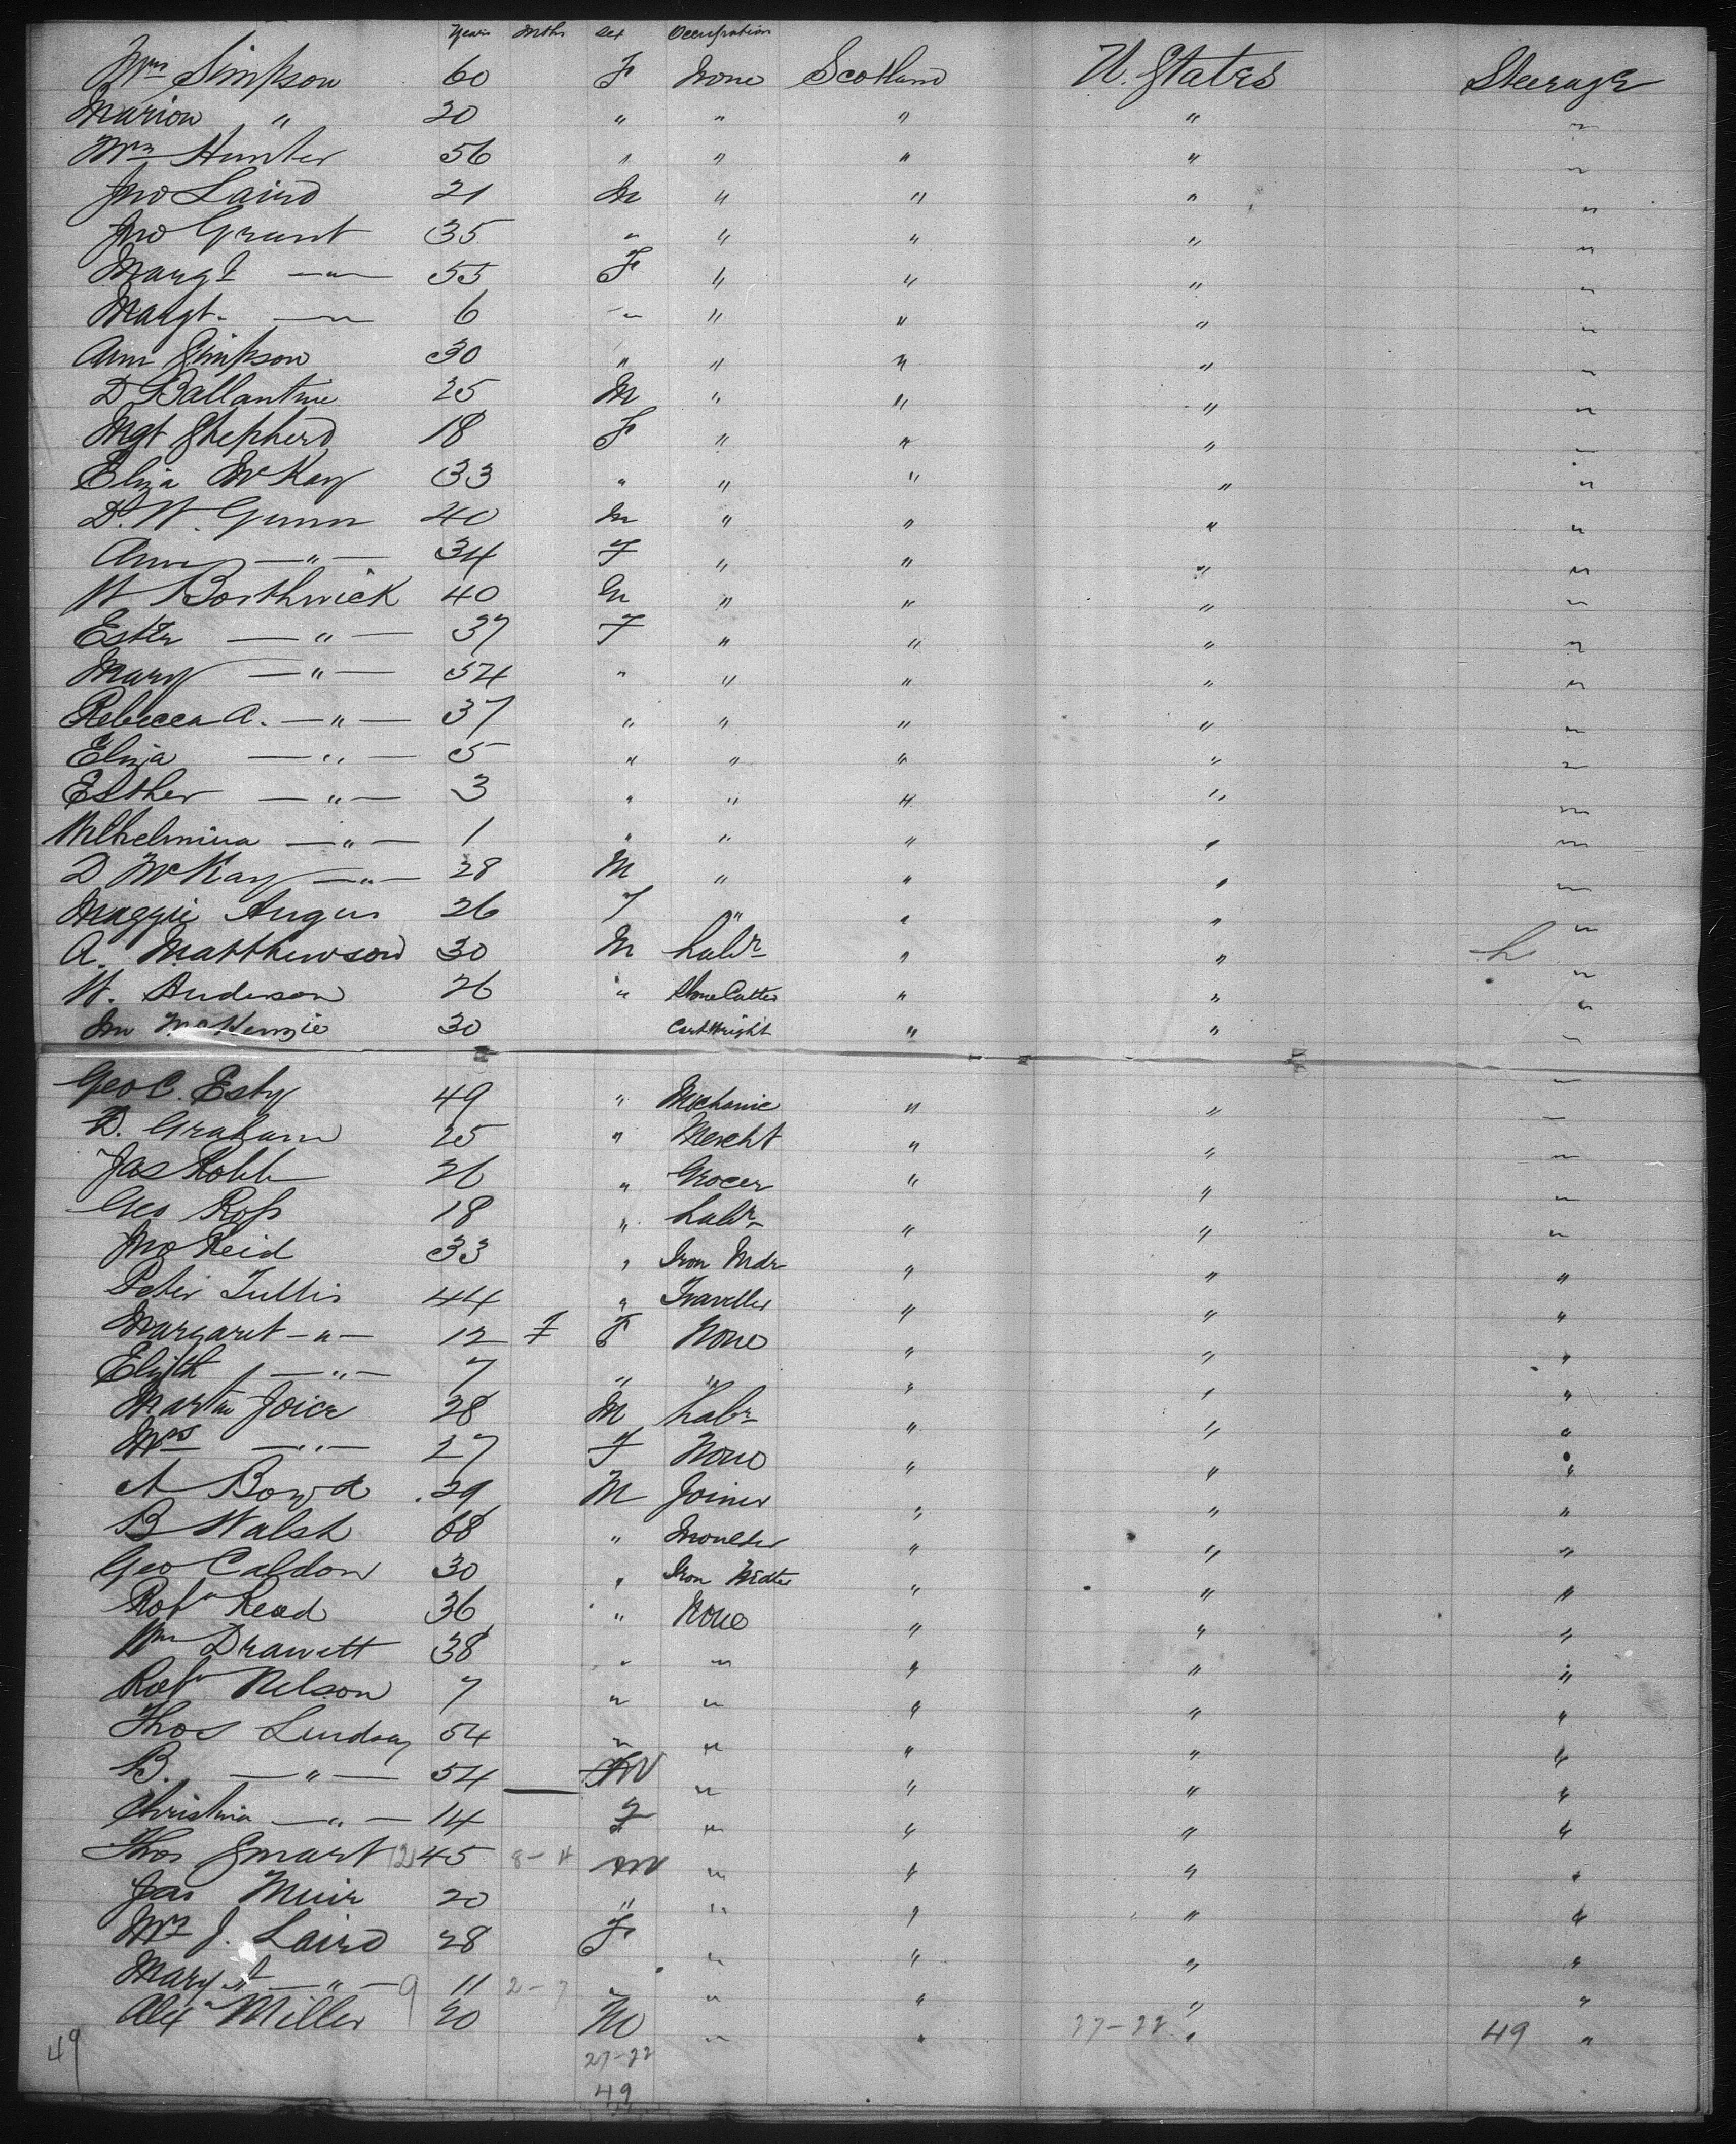 Years Mths Sex Occupation
Mrs Simpson 60 F None Scotland U. States Steerage
Marion " 20 " " " " "
Mrs Hunter 56 " " " " "
Jno Laird 21 M " " " "
Jno Grant 35 " " " " "
Margt — " — 55 F " " " "
Margt. — " 6 " " " " "
Ann Simpson 30 " " " " "
D Ballantine 25 M " " " "
Mgt Shepherd 18 F " " " "
Eliza McKay 33 " " " " "
D. W. Gunn 40 M " " " "
Ann — " — 34 F " " " "
W Borthwick 40 M " " " "
Ester — " — 37 F " " " "
Mary — " — 54 " " " " "
Rebecca A. — " — 37 " " " " "
Eliza — " — 5 " " " " "
Esther — " — 3 " " " " "
Wilhelmina — " — 1 " " " " "
D McKay — " — 28 M " " " "
Maggie Angus 26 F " " " "
A. Matthewson 30 M Labr " " "
W. Anderson 26 " Stone Cutter " " "
Jn McKenzie 30 Cartwright " " "
Geo C. Esty 49 " Mechanic " " "
D. Graham 25 " Mercht " " "
Jas Robb 26 " Grocer " " "
Geo Ross 18 " Labr " " "
Jno Reid 33 " Iron Mdr " " "
Peter Tullis 44 " Traveller " " "
Margaret — " — 12 F F None " " "
Elizth — " — 7 " " " " "
Martin Joice 28 M Labr " " "
Mrs — " — 27 F None " " "
A Bowd 29 M Joiner " " "
B Walsh 68 " Moulder " " "
Geo Caldow 30 " Iron " " "
Robt Read 36 " None " " "
Wm Drawett 38 " " " " "
Robt Nelson 7 " " " " "
Thos Lindsay 54 " " " " "
B. — " — 54 — M " " " "
Christina — " — 14 F " " " "
Thos Smart 12 45 8 - 4 M " " " "
Jas Muir 20 " " " " "
Mrs J. Laird 28 F " " " "
Mary — " — 9 11 2 - 7 " " " " "
Alexr Miller 20 M " " 27-22 " 49 "
49 27-22
49